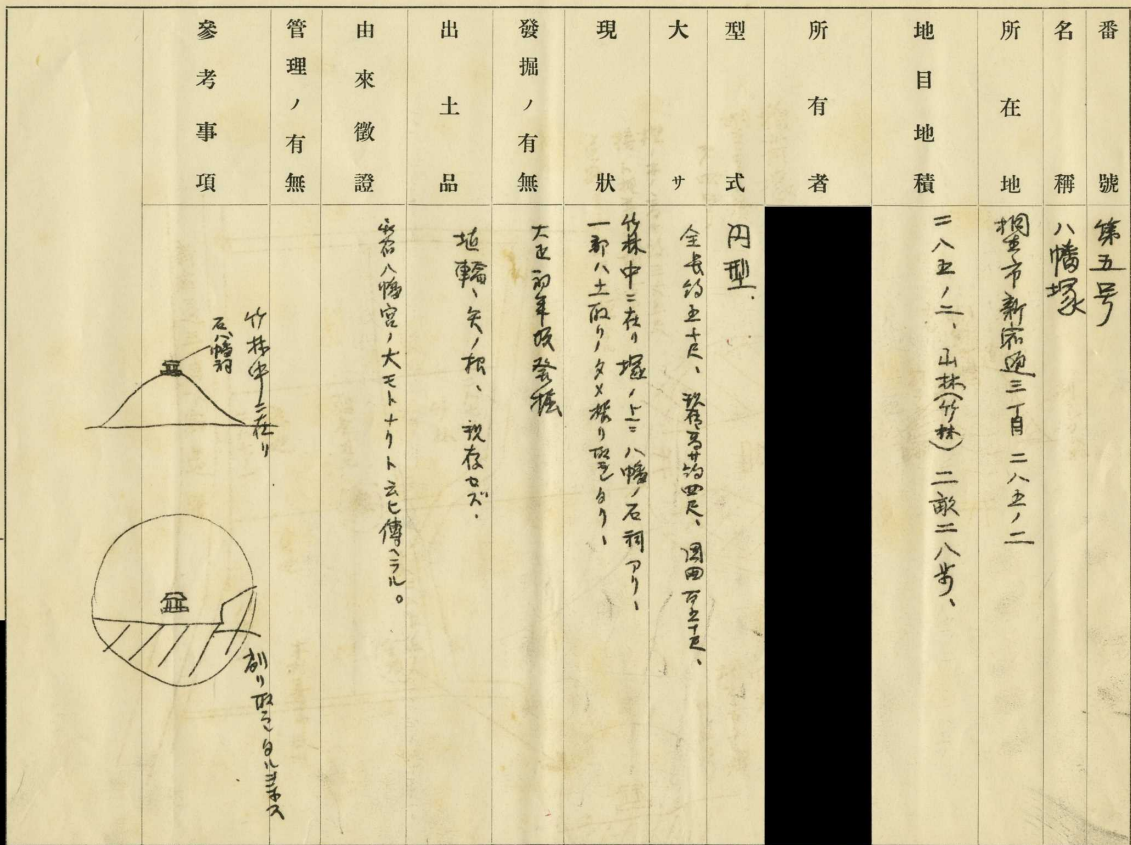 番號
第五号
名稱
八幡塚
所在地
桐生市新宿通三丁目二八五ノ二
地目地積
二八五ノ二、山林(竹林)二畝二八歩、
所有者
型式
円型.
大サ
全長約五十尺、高サ約四尺、周囲百五十尺、
現狀
竹林中ニ在リ塚ノ上ニ八幡ノ石祠アリ、
一部ハ土取リノタメ掘リ取ラレタリ、
發掘ノ有無
大正初年頃発掘
出土品
埴輪、矢ノ根、現存セズ、
由來徵證
新宿八幡宮ノ大モトナリト云ヒ傳ヘラル。
管理ノ有無
參考事項
竹林中ニ在リ
石八幡祠
削リ取ラレタルヲ示ス